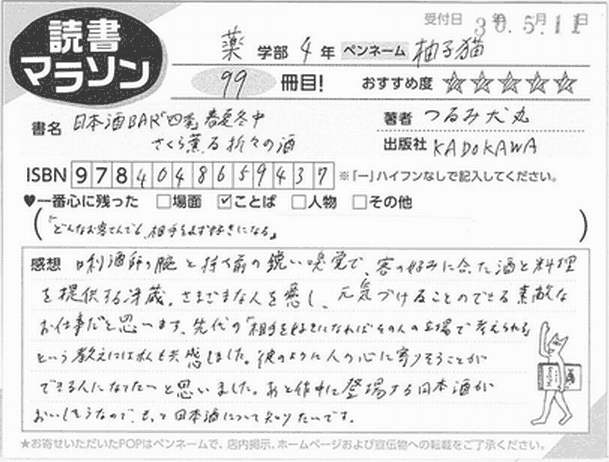 読書
マラソン
受付日 30年5月11日
薬 学部 4 年 ペンネーム 柚子猫
99 冊目! おすすめ度 ☆☆☆☆☆
書名 日本酒BAR「四季」春夏冬中
さくら薫る折々の酒
著者 つるみ犬丸
出版社 KADOKAWA
ISBN 9784048659437 ※「ー」ハイフンなしで記入してください。
♥一番心に残った □場面 ☑ことば □人物 □その他
(「どんなお客さんでも、相手をまず好きになる」)
感想 利酒師の腕と持ち前の鋭い嗅覚で、客の好みに合った酒と料理
を提供する冴蔵。さまざまな人を癒し、元気づけることのできる素敵な
お仕事だと思います。先代の「相手を好きになればその人の立場で考えられる」
という教えには私も共感しました。彼のように人の心に寄りそうことが
できる人になりたいと思いました。あと作中に登場する日本酒が
おいしそうなので、もっと日本酒について知りたいです。
★お寄せいただいたPOPはペンネームで、店内掲示、ホームページおよび宣伝物への転載をご了承ください。